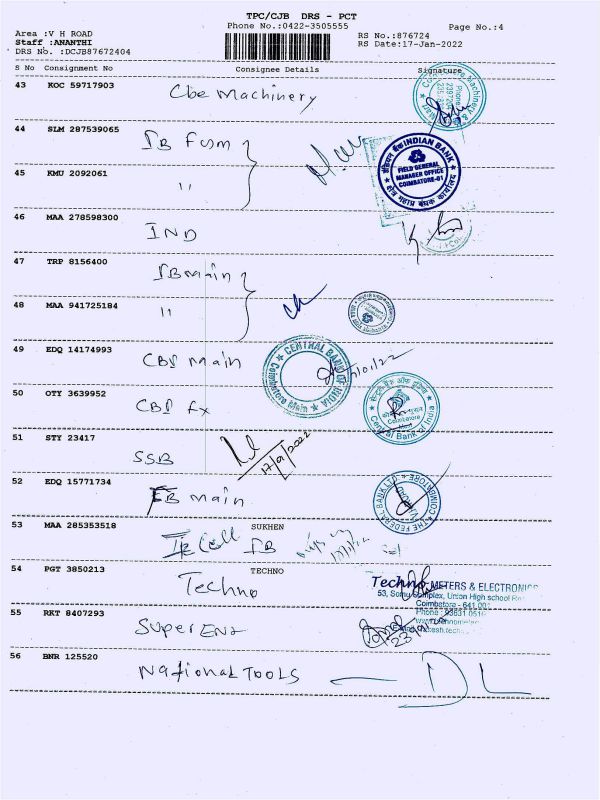 TPC/CJB DRS - PCT
Phone No.:0422-3505555
Page No.:4
Area :V H ROAD
Staff :ANANTHI
DRS No. :DCJB87672404
RS No.:876724
RS Date:17-Jan-2022
S No Consignment No Consignee Details Signature
43 KOC 59717903
Cbe Machinery
44 SLM 287539065
45 KMU 2092061
"
INDIAN BANK
FIELD GENERAL
MANAGER OFFICE
COIMBATORE-01
46 MAA 278598300
IND
47 TRP 8156400
IB main
48 MAA 941725184
"
49 EDQ 14174993
CBI main
CENTRAL BANK OF INDIA
Coimbatore Main
50 OTY 3639952
CBI fx
Central Bank of India
Coimbatore
51 STY 23417
SSB
17/01/2022
52 EDQ 15771734
FB main
THE FEDERAL BANK LTD.
COIMBATORE
V.H.ROAD
53 MAA 285353518 SUKHEN
IB
54 PGT 3850213 TECHNO
Techno
Techno METERS & ELECTRONICS
53, Somu Complex, Union High school
Coimbatore - 641 001
Phone
55 RKT 8407293
Super Enz
56 BNR 125520
National TOOLS
DL